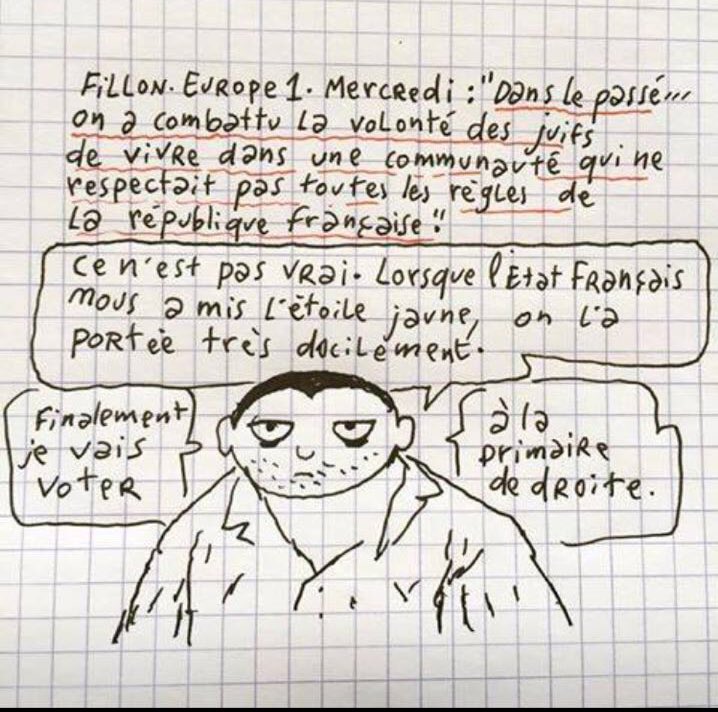 Fillon. Europe 1. Mercredi : "Dans le passé...
on a combattu la volonté des juifs
de vivre dans une communauté qui ne
respectait pas toutes les règles de
la république française".
Ce n'est pas vrai. Lorsque l'État Français
nous a mis l'étoile jaune, on l'a
portée très docilement.
Finalement
je vais
voter
à la
primaire
de droite.